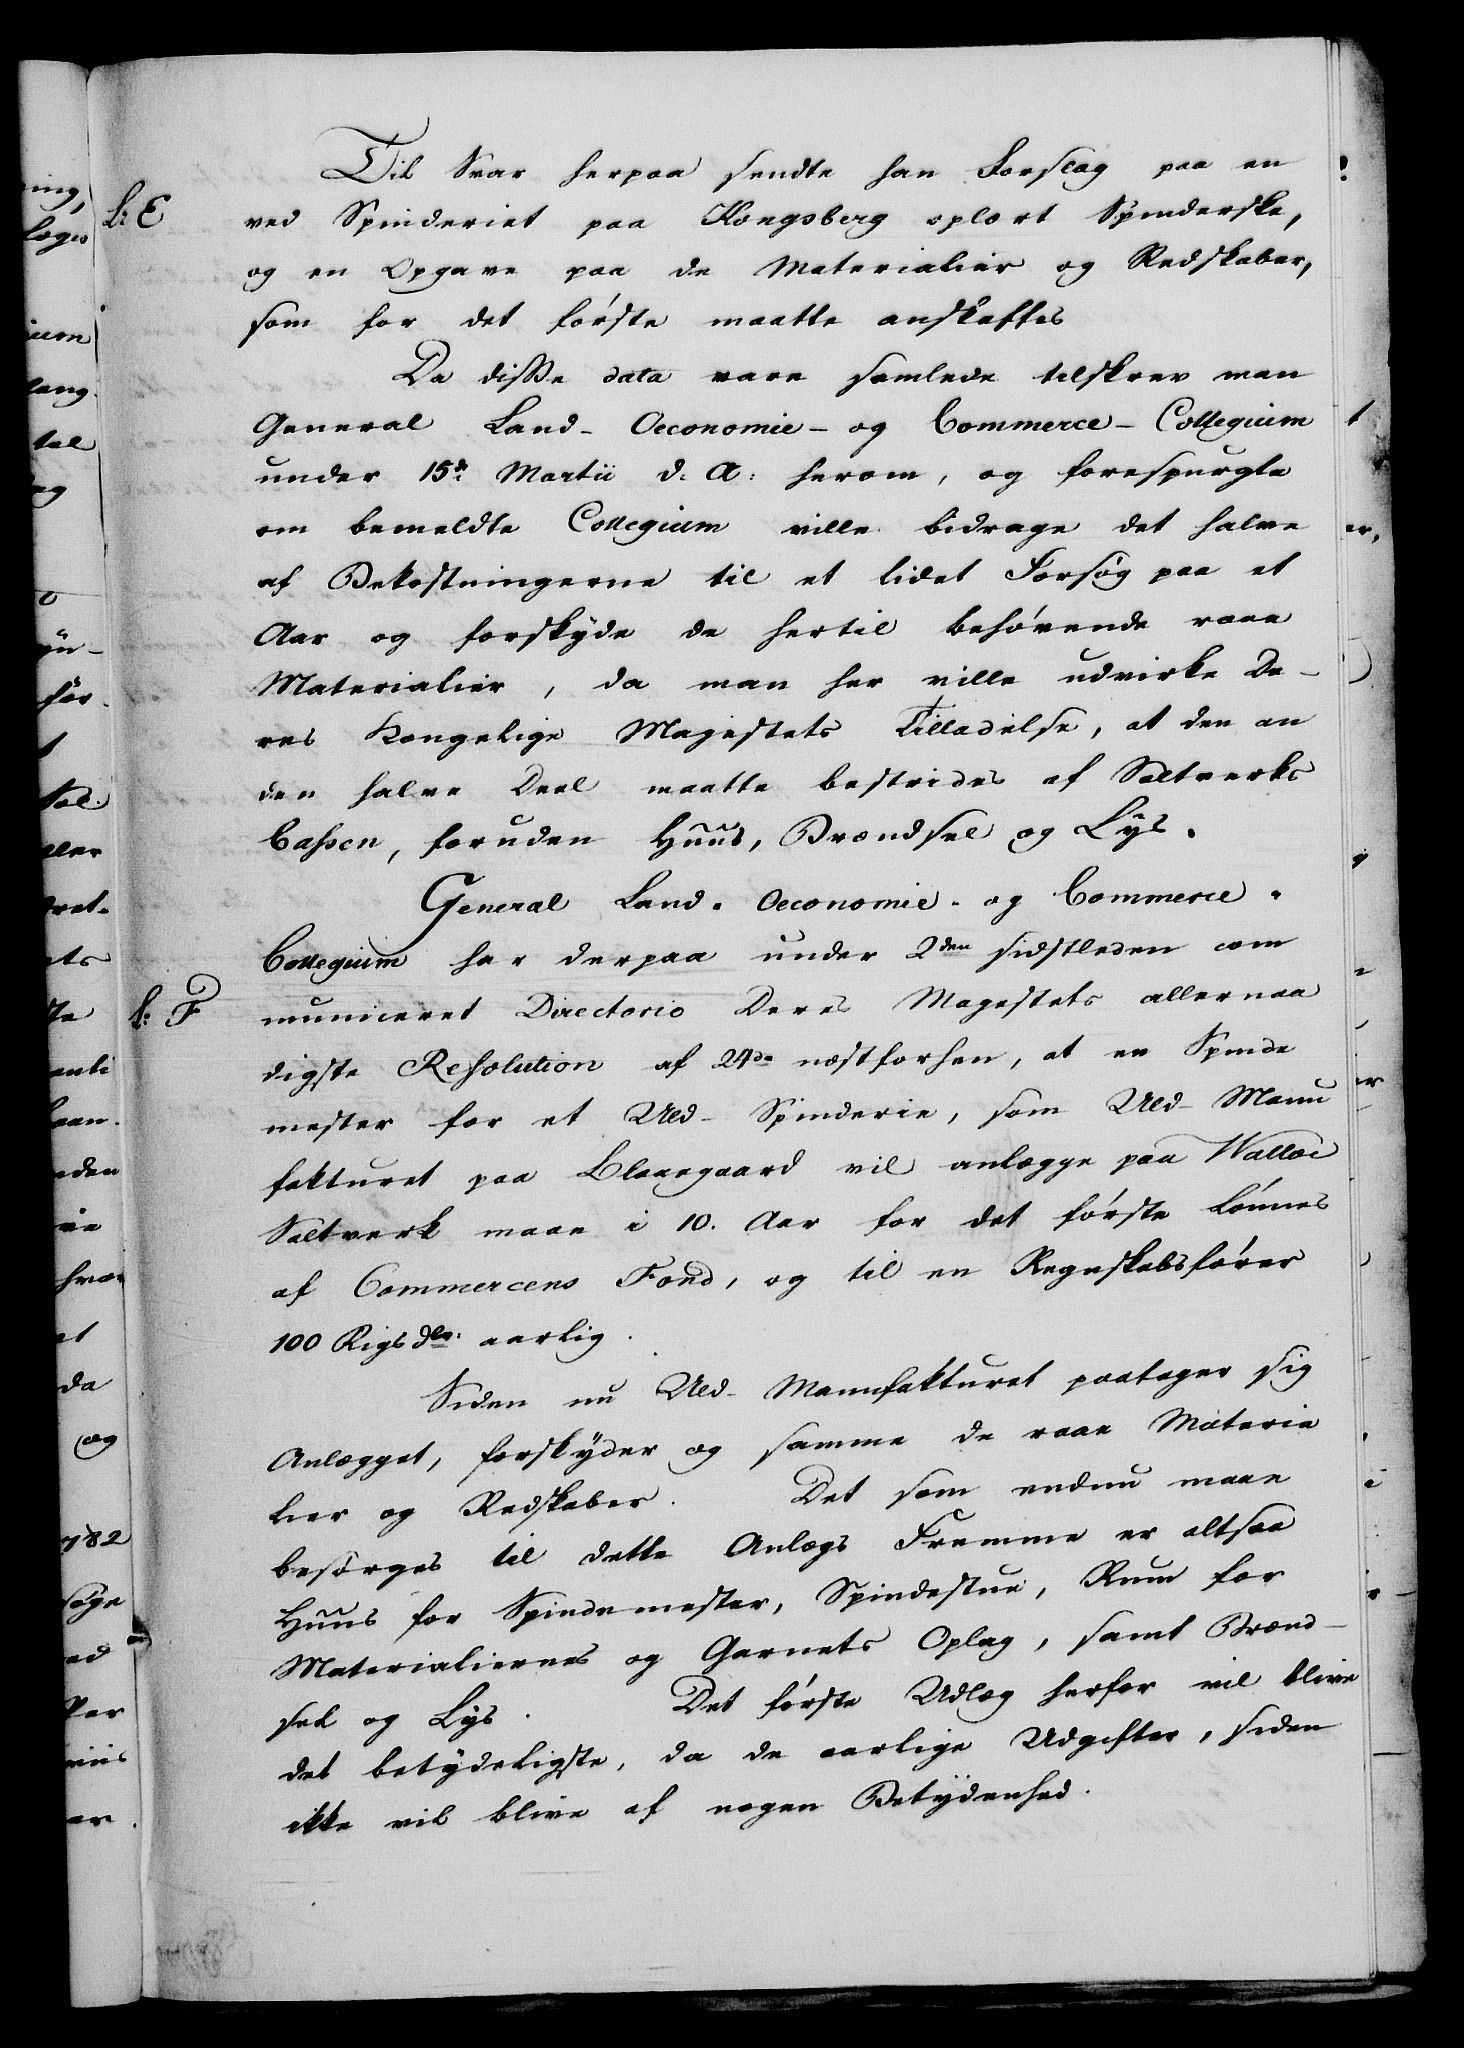 Til Svar herpaa sendte han Forslag paa en
L: E
ved Spinderiet paa Kongsberg oplært Spinderske,
og en Opgave paa de Materialier og Redskaber,
som for det første maatte anskaffes
Da disse data vare samlede tilskrev man
General Land- Oeconomie- og Commerce- Collegium
under 15de Martii d: A: herom, og forespurgte
om bemeldte Collegium ville bidrage det halve
af Bekostningerne til et lidet Forsøg paa et
Aar og forskyde de hertil behøvende raae
Materialier, da man her ville udvirke De-
res Kongelige Majestets Tilladelse, at den an
den halve Deel maatte bestrides af Saltverks
Cassen, foruden Huus, Brændsel og Lys.
General Land- Oeconomie- og Commerce-
Collegium har derpaa under 2den sidstleden com
L: F
municeret Directorio Deres Majestets allernaa
digste Resolution af 24de næstforhen, at en Spinde
mester for et Uld- Spinderie, som Uld- Manu
fakturet paa Blaagaard vil anlægge paa Walløe
Saltverk maae i 10. Aar for det første lønnes
af Commercens Fond, og til en Regnskabsfører
100 Rigsdlr: aarlig.
Siden nu Uld- Manufakturet paatager sig
Anlægget, forskyder og samme de raae Materia
lier og Redskaber. Det som endnu maae
besørges til dette Anlægs Fremme er altsaa
Huus for Spindemester, Spindestue, Rum for
Materialiernes og Garnets Oplag, samt Brænd-
sel og Lys. Det første Udlæg herfor vil blive
det betydeligste, da de aarlige Udgifter, siden
ikke vil blive af nogen Betydenhed.